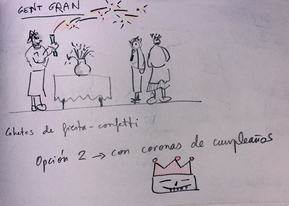 GENT GRAN
Cohetes de fiesta - confetti
Opción 2 → con coronas de cumpleaños